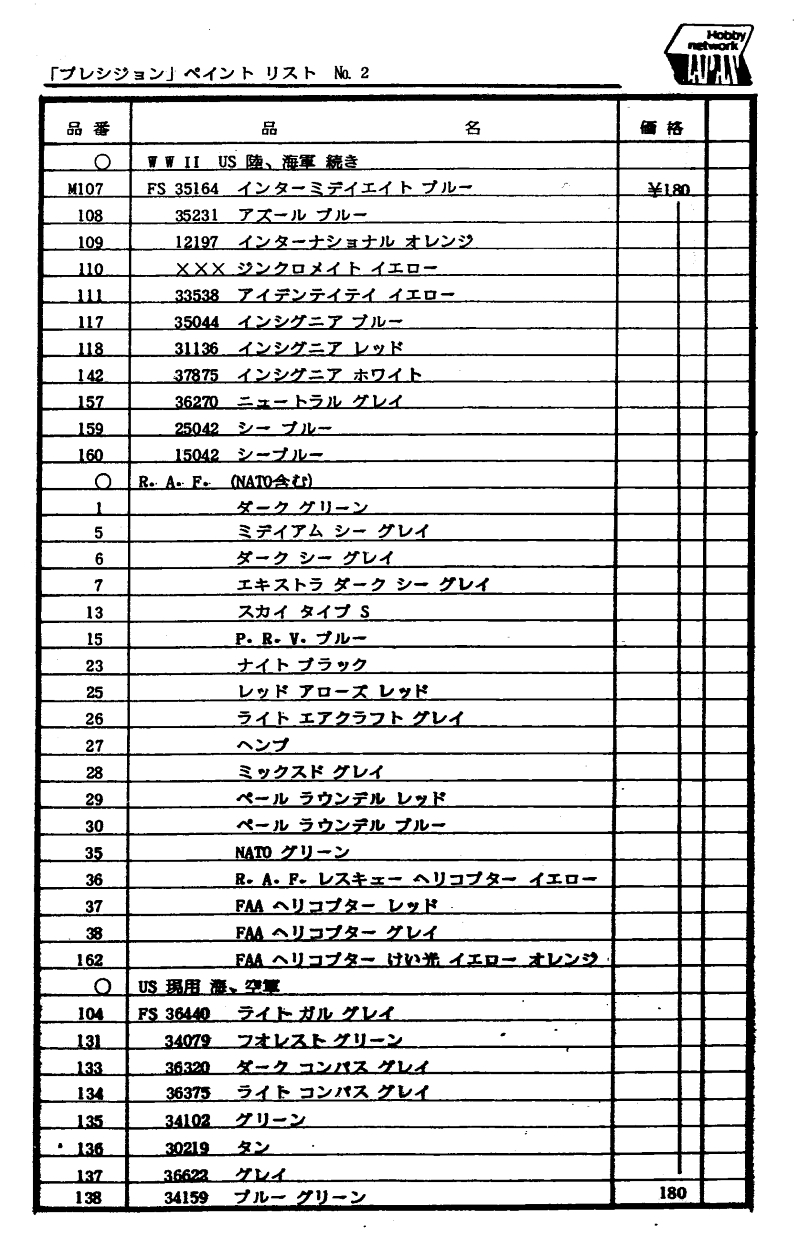 Hobby
network
JAPAN
「プレシジョン」ペイント リスト No. 2
品 番 品 名 価 格
○ W W II US 陸、海軍 続き
M107 FS 35164 インターミデイエイト ブルー ¥180
108 35231 アズール ブルー
109 12197 インターナショナル オレンジ
110 ××× ジンクロメイト イエロー
111 33538 アイデンテイテイ イエロー
117 35044 インシグニア ブルー
118 31136 インシグニア レッド
142 37875 インシグニア ホワイト
157 36270 ニュートラル グレイ
159 25042 シー ブルー
160 15042 シーブルー
○ R. A. F. (NATO含む)
1 ダーク グリーン
5 ミデイアム シー グレイ
6 ダーク シー グレイ
7 エキストラ ダーク シー グレイ
13 スカイ タイプ S
15 P. R. V. ブルー
23 ナイト ブラック
25 レッド アローズ レッド
26 ライト エアクラフト グレイ
27 ヘンプ
28 ミックスド グレイ
29 ペール ラウンデル レッド
30 ペール ラウンデル ブルー
35 NATO グリーン
36 R. A. F. レスキュー ヘリコプター イエロー
37 FAA ヘリコプター レッド
38 FAA ヘリコプター グレイ
162 FAA ヘリコプター けい光 イエロー オレンジ
○ US 現用 海、空軍
104 FS 36440 ライト ガル グレイ
131 34079 フオレスト グリーン
133 36320 ダーク コンパス グレイ
134 36375 ライト コンパス グレイ
135 34102 グリーン
136 30219 タン
137 36622 グレイ
138 34159 ブルー グリーン 180